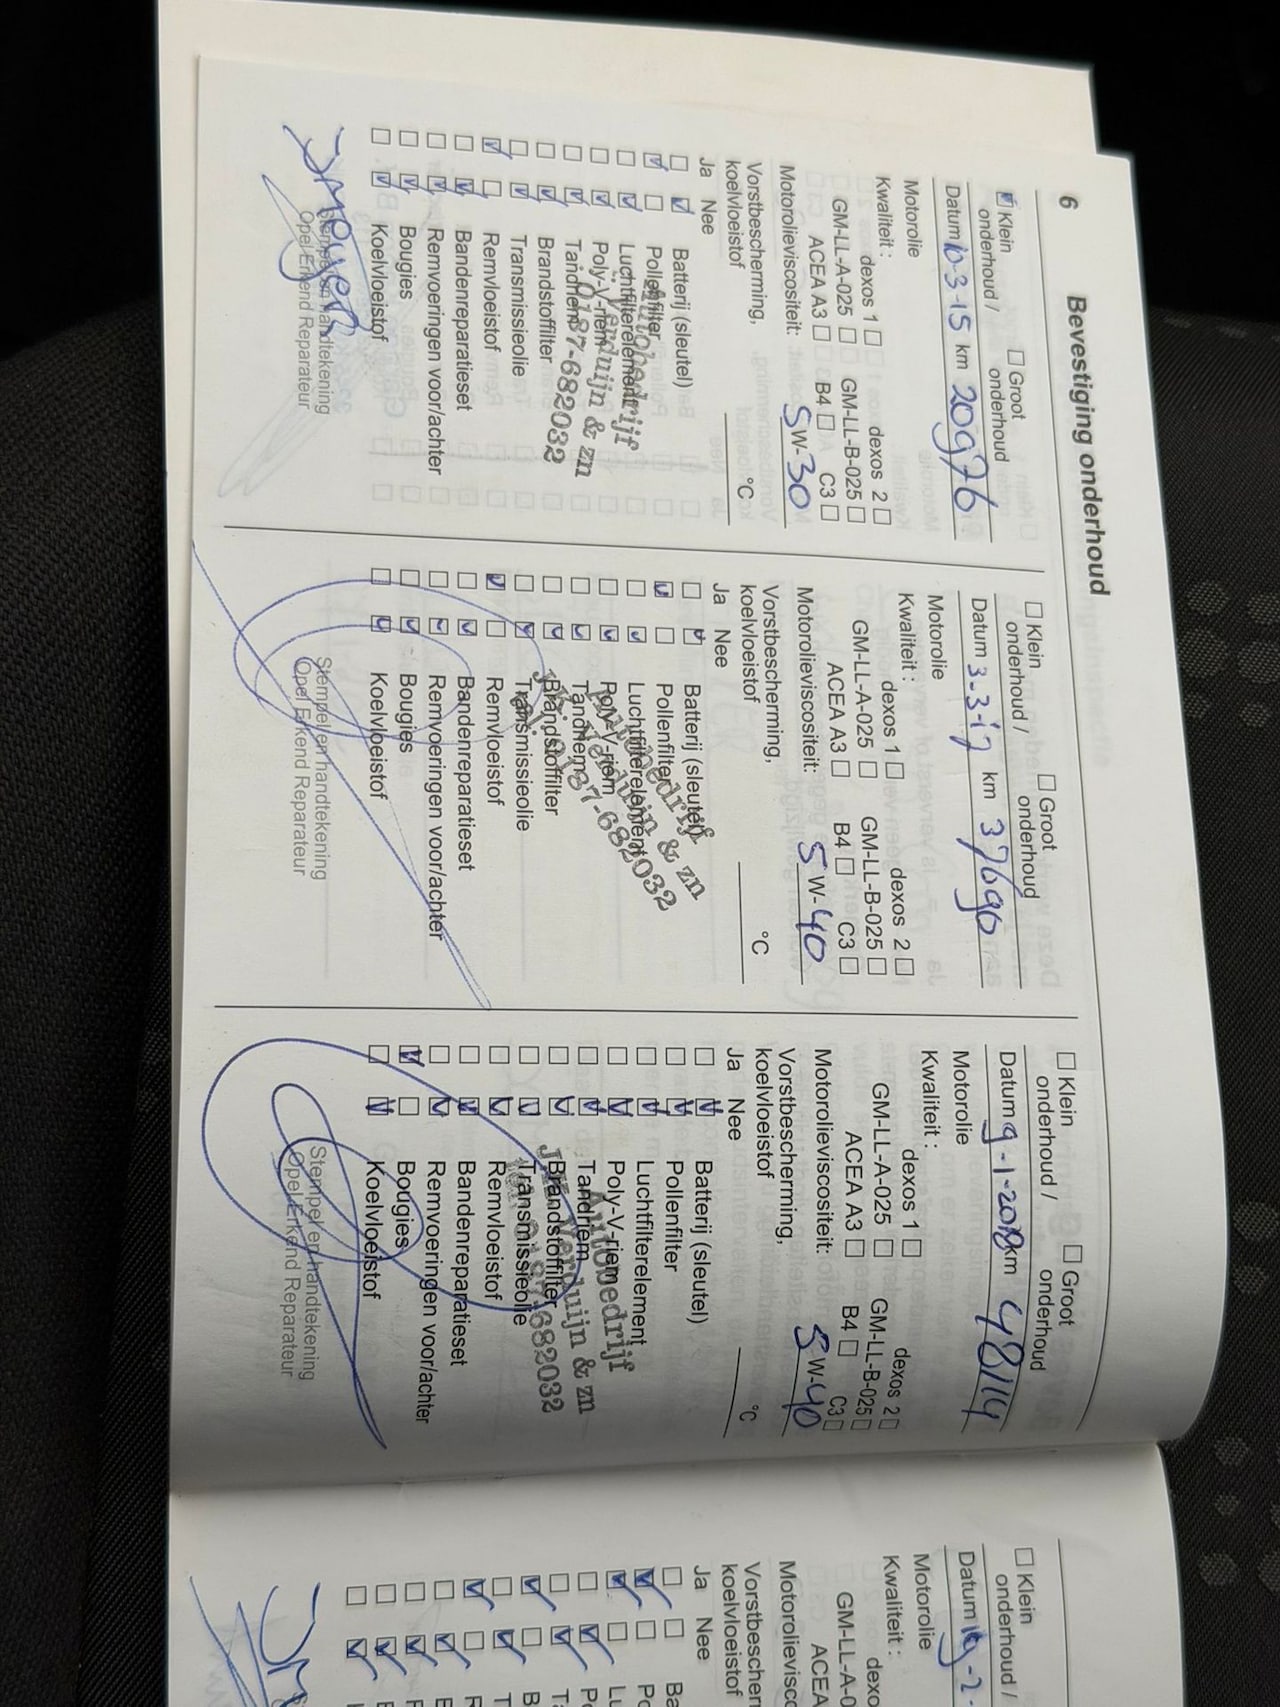 6 Bevestiging onderhoud
Klein onderhoud /
Groot onderhoud
Datum 10-3-15 km 20976
Motorolie
Kwaliteit :
dexos 1 dexos 2
GM-LL-A-025 GM-LL-B-025
ACEA A3 B4 C3
Motorolieviscositeit: 5 W- 30
Vorstbescherming,
koelvloeistof °C
Ja Nee
Batterij (sleutel)
Pollenfilter
Luchtfilterelement
Poly-V-riem
Tandriem
Brandstoffilter
Transmissieolie
Remvloeistof
Bandenreparatieset
Remvoeringen voor/achter
Bougies
Koelvloeistof
Autobedrijf
J. Verduijn & zn
0187-682032
Stempel en handtekening
Opel Erkend Reparateur
Klein onderhoud /
Groot onderhoud
Datum 3-3-17 km 37690
Motorolie
Kwaliteit :
dexos 1 dexos 2
GM-LL-A-025 GM-LL-B-025
ACEA A3 B4 C3
Motorolieviscositeit: 5 W- 40
Vorstbescherming,
koelvloeistof °C
Ja Nee
Batterij (sleutel)
Pollenfilter
Luchtfilterelement
Poly-V-riem
Tandriem
Brandstoffilter
Transmissieolie
Remvloeistof
Bandenreparatieset
Remvoeringen voor/achter
Bougies
Koelvloeistof
Autobedrijf
Verduijn & zn
0187-682032
Stempel en handtekening
Opel Erkend Reparateur
Klein onderhoud /
Groot onderhoud
Datum 9-1-2018 km 48114
Motorolie
Kwaliteit :
dexos 1 dexos 2
GM-LL-A-025 GM-LL-B-025
ACEA A3 B4 C3
Motorolieviscositeit: 5 W- 40
Vorstbescherming,
koelvloeistof °C
Ja Nee
Batterij (sleutel)
Pollenfilter
Luchtfilterelement
Poly-V-riem
Tandriem
Brandstoffilter
Transmissieolie
Remvloeistof
Bandenreparatieset
Remvoeringen voor/achter
Bougies
Koelvloeistof
Autobedrijf
Verduijn & zn
0187-682032
Stempel en handtekening
Opel Erkend Reparateur
Klein
onderhoud /
Datum
Motorolie
Kwaliteit :
dexo
GM-LL-A-0
ACEA
Motorolievisco
Vorstbescher
koelvloeistof
Ja Nee
Ba
Po
Lu
Po
Ta
B
T
R